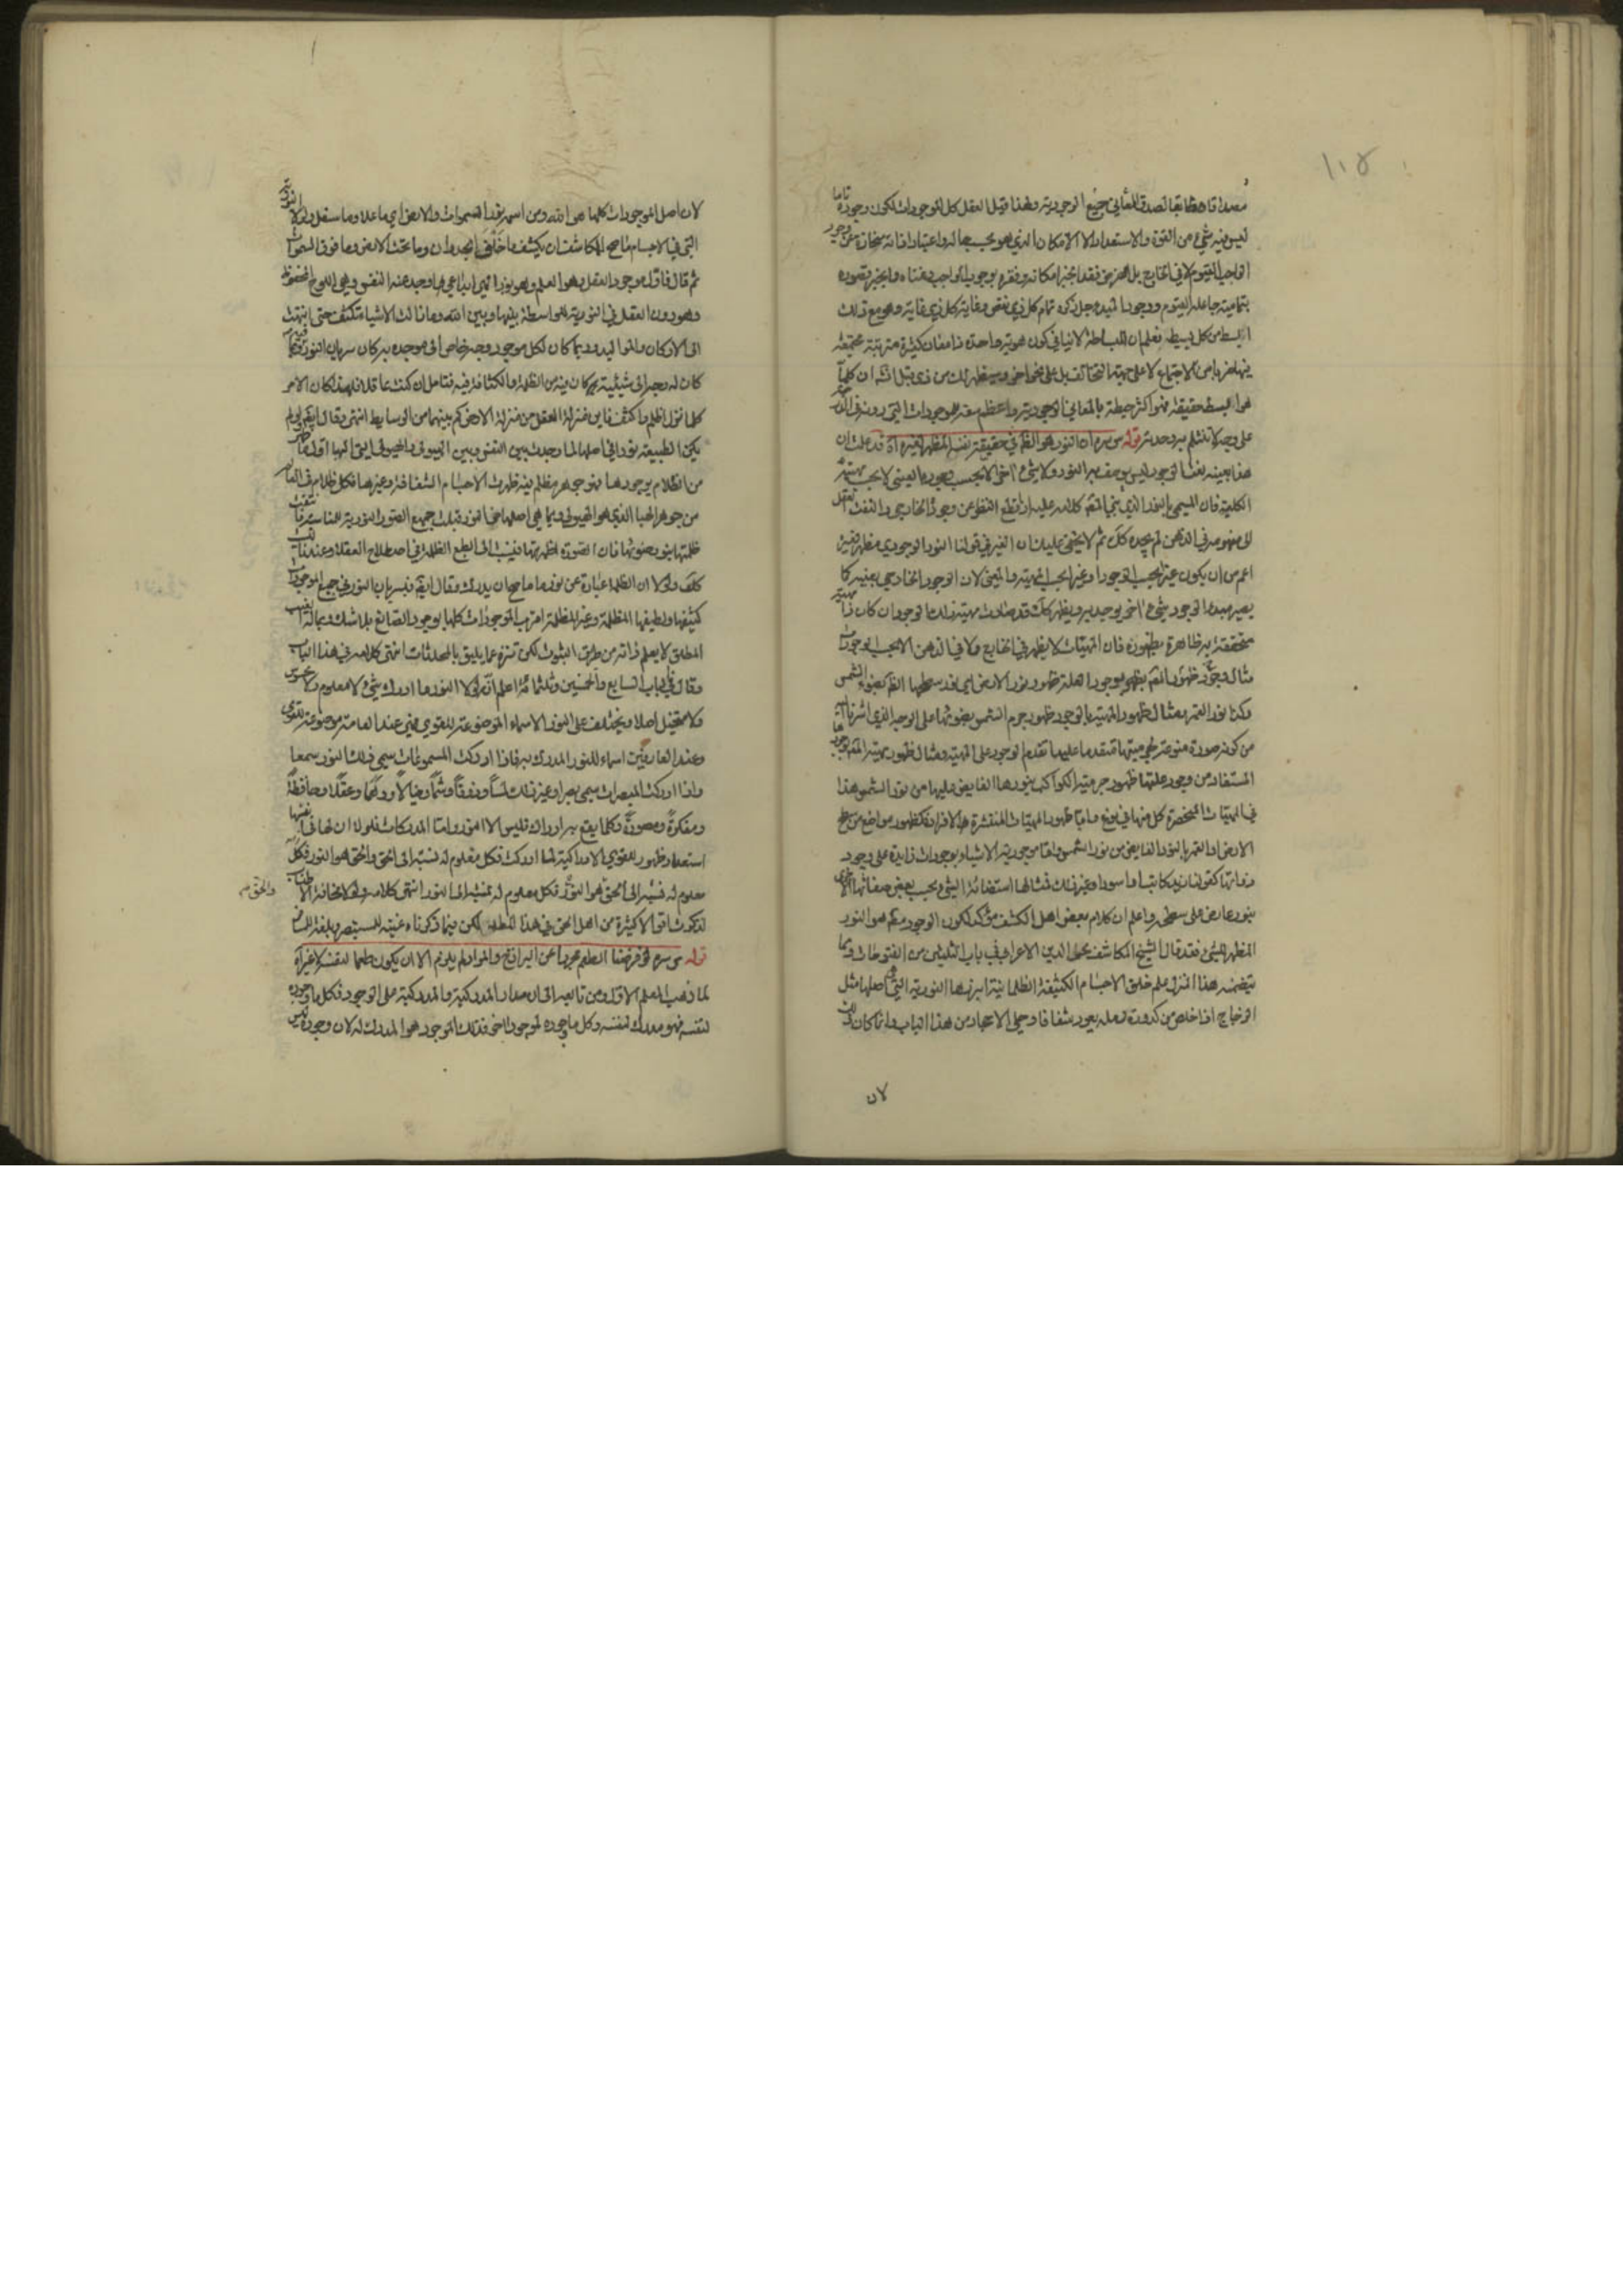 ١١٨
مصداقا مطابقا لصدق المعاني جميع الوجودية ولهذا قيل العقل كل الموجودات لكون وجوده تاما
ليس فيه شئ من القوة والاستعداد الا الامكان الذي هو بحسب حاله واعتبار ذاته منحازة عن وجود
الواجب القيوم لا في الخارج بل فقد انجبر امكانه وفقره بوجوب الواجب وغناه وانجبر قصوره
بتمامية جاعله القيوم ووجود المبدع جل ذكره تمام كل ذي نقص وغاية كل ذي غاية وهو مع ذلك
ابسط من كل بسيط فعلم ان البساطة لا ينافي كون هوية واحدة ذا معان كثيرة مترتبة مجتمعة
فيها ضربا من الاجتماع لا على جهة التخالف بل على نحو اخر وسيظهر لك من ذي قبل انشاء ان كلما
هو ابسط حقيقة فهو اكثر حيطة بالمعاني الوجودية واعظم سعة للموجودات التي دونه
على وجه لا تنثلم به وحدته قوله س سره ان النور هو الظاهر في حقيقة نفسه المظهر لغيره آه قد علمت ان
هذا بعينه نفس الوجود ليس يوصف به النور ولا شئ اخر الا بحسب وجوده العيني لا بحسب مهيته
الكلية فان المسمى بالنور الذي يجئ كلامه عليه اذا قطع النظر عن وجود الخارجي والتفت العقل
الى مفهومه في الذهن لم يجده كك ثم لا يخفى عليك ان الغير في قولنا النور الوجودي مظهر لغيره
اعم من ان يكون غيرا بحسب الوجود او غيرا بحسب المهية والمعنى لان الوجود الخارجي بعينه كما
يصير مبدء لوجود شئ اخر يوجد به ويظهر كك قد صادف مهية ذلك الوجود ان كان ذا مهية
متحققة به ظاهرة بظهوره فان المهيات لا يظهر في الخارج ولا في الذهن الا بحسب الوجود
مثال وجود ظهور بوجود اهلة ظهور نور الارض اي نور سطحها الظاهر بضوء الشمس
وكذا نور القمر ومثال ظهور المهية بالوجود ظهور جرم الشمس بضوئها على الوجه الذي اشرنا اليه
من كونه صورة منوعة لمهيتها متقدما عليها تقدم الوجود على المهية ومثال ظهور مهية الوجود
المستفاد من وجود علتها ظهور جرمية الكواكب بنورها الفايض عليها من نور الشمس هذا
في المهيات المنحصرة كل منها في نوع واما ظهور المهيات المنتشرة الافراد فكظهور مواضع من سطح
الارض او القمر بالنور الفايض من نور الشمس واما موجودية الاشياء بوجودات زايدة على وجود
ذواتها كقولنا زيد كاتبا واسود وغير ذلك فمثالها استضائة الشئ بحسب بعض صفاتها الاخرى
بنور عارض على سطحه واعلم ان كلام بعض اهل الكشف مؤكد لكون الوجود هو النور
المظهر للشئ فقد قال الشيخ المكاشف محي الدين الاعرابي في باب الثلثين من الفتوحات ومما
يتضمنه هذا المنزل علم خلق الاجسام الكثيفة الظلمانية النورية التي هي اصلها مثل
الزجاج اذا خلص من كدورة رمله يعود شفافا وحلي الاحجار من هذا الباب وانما كان ذلك
لان
لان اصل الموجودات كلها هو الله ومن اسمه نور السموات والارض اي ما علا وما سفل ولولا النورية
التي في الاجسام ما صح للمكاشف ان يكشف ما خلف الجدران وما تحت الارض وما فوق السموات
ثم قال فاول موجود العقل وهو القلم وهو نور الهي ابداعي وجد عنه النفس وهي اللوح المحفوظ
وهو دون العقل في النورية للواسطة بينها وبين الله وما زالت الاشياء تكثف حتى انتهت
الى الاركان والمواليد وبما كان لكل موجود وجه خاص الى موجده به كان سريان النور فيه وبما
كان له وجه الى شيئيته به كان فيه من الظلمة والكثافة فيه فتأمل ان كنت عاقلا فلهذا كان الامر
كلما نزل اظلم واكثف فاين منزلة العقل من منزلة الارض كم بينهما من الوسايط انتهى وقال ايضا لو لم
يكن الطبيعة نورا في اصلها لما وجدت بين النفس وبين الهيولى والهيولى التي لها اول ما ظهر
من الظلام بوجودها فهو جوهر مظلم فيه ظهرت الاجسام الشفافة وغيرها فكل ظلام في العالم
من جوهر الهباء الذي هو الهيولى وبما هي اصلها من النور قبلت جميع الصور النورية للمناسبة فانتفت
ظلمتها بنور صورها فان الصورة اظهرتها فنسب الى الطبع الظلمة في اصطلاح العقلاء وعندنا ليست
كك ولولا ان الظلمة عبارة عن نور ما ما صح ان يدرك وقال ايضا فبسريان النور في جميع الموجودات
كثيفها ولطيفها المظلمة وغير المظلمة اقرت الموجودات كلها بوجود الصانع بلا شك وبماله الغيب
المطلق لا يعلم ذاته من طريق الثبوت لكن تنزه عما يليق بالمحدثات انتهى كلامه في هذا الباب
وقال في الباب السابع والخمسين وثلثمائة اعلم انه لولا النور ما ادرك شئ لا معلوم ولا محسوس
ولا متخيل اصلا ويختلف على النور الاسماء الموضوعة للقوى فهي عند العامة موضوعة للقوى
وعند العارفين اسماء للنور المدرك به فاذا ادركت المسموعات سمى ذلك النور سمعا
واذا ادركت المبصرات سمى بصرا وغير ذلك لمسا وذوقا وشما وخيالا ووهما وعقلا وحافظة
ومفكرة ومصورة وكلما يقع به ادراك فليس الا النور واما المدركات فلولا ان لها في نفسها
استعداد ظهور للقوى الادراكية لما ادركت فكل معلوم له نسبة الى الحق والحق هو النور فكل
معلوم له نسبة الى الحق هو النور فكل معلوم له نسبة الى النور انتهى كلامه ولولا مخافة الاطناب
لذكرت اقوالا كثيرة من اهل الحق في هذا المطلب لكن فيما ذكرناه غنية للمستبصر وبلغة للسالك
والحق
قوله س سره لو فرضنا الطعم مجردا عن البرازخ والمواد لم يلزم الا ان يكون طعما لنفسه لا غير آه
لما ذهب المعلم الاول ومن تابعه الى ان مدار المدركية والمدركية على الوجود فكل ما وجوده
لنفسه فهو مدرك لنفسه وكل ما وجوده لموجود اخر فذلك الموجود هو المدرك له لان وجوده ليس